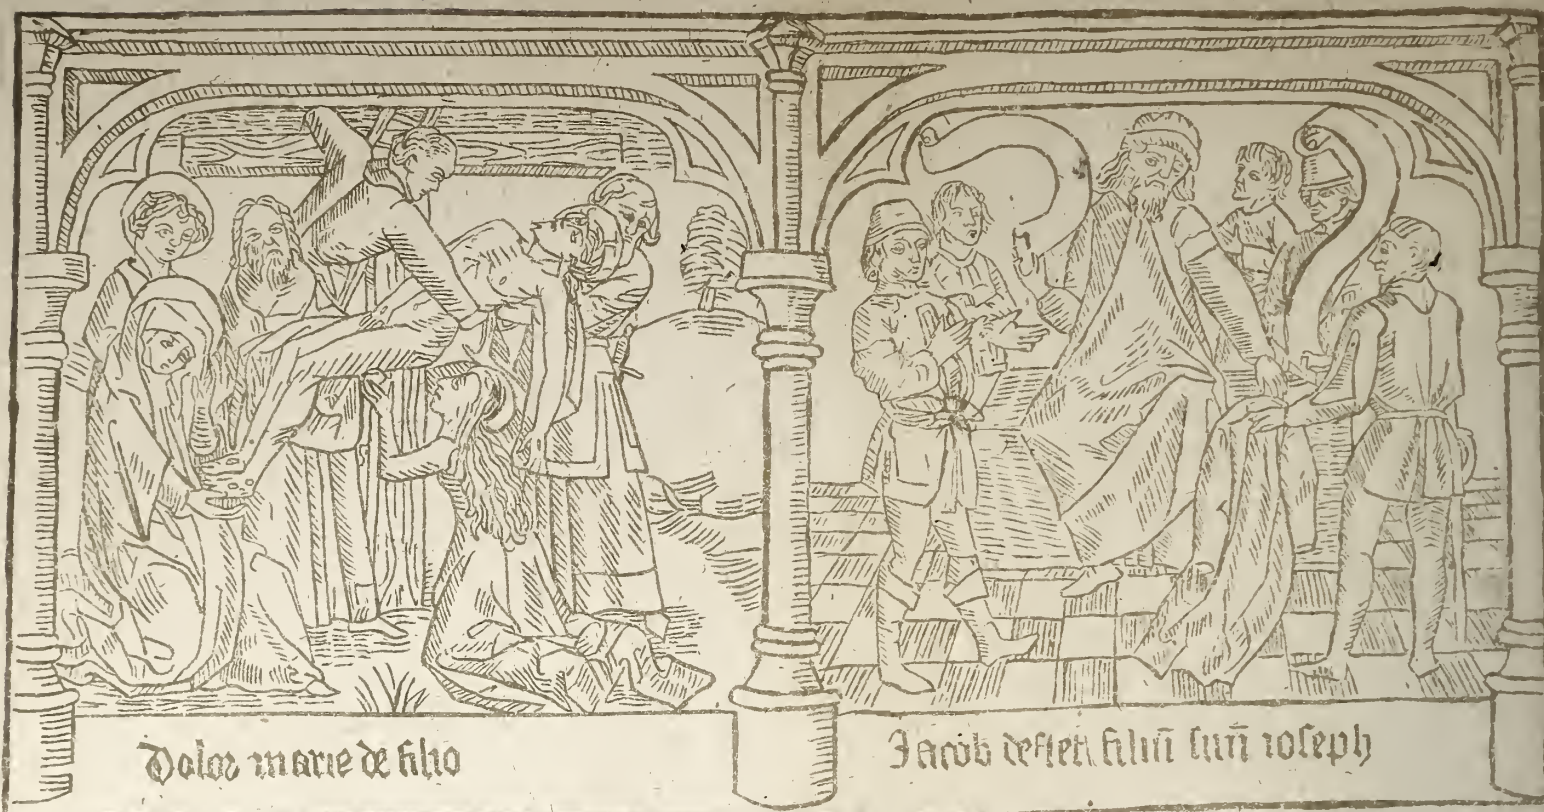 Dolor marie de filio
Jacob deflet filiū suū ioseph